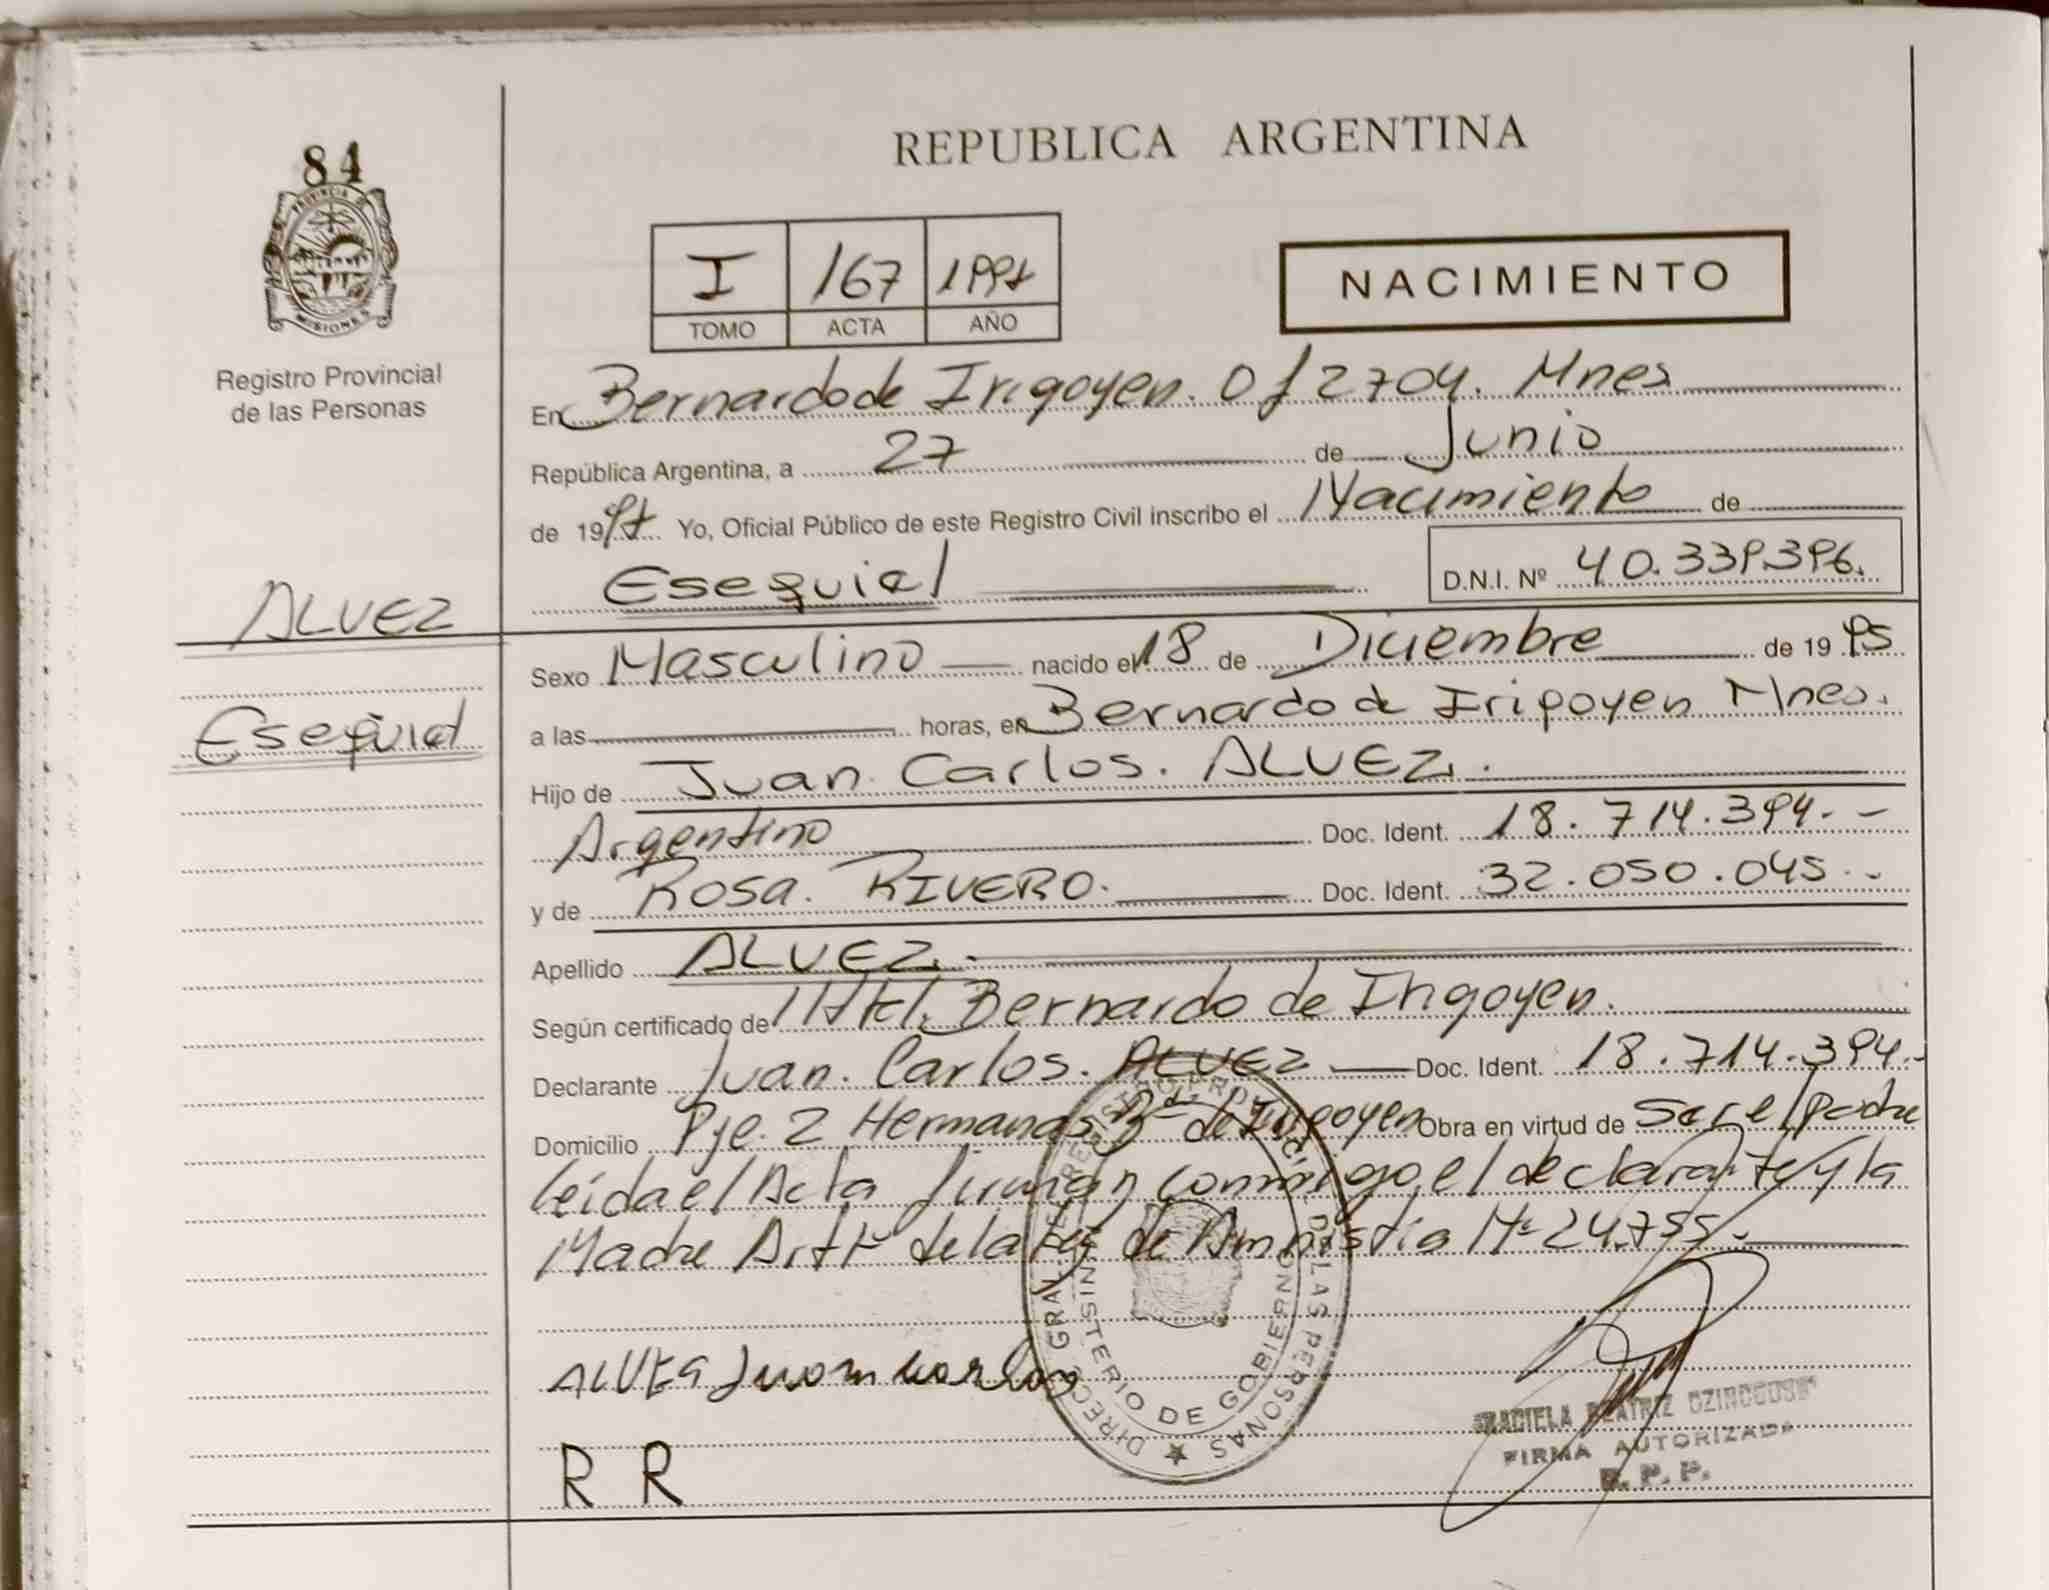 84
PROVINCIA D
MISIONES
Registro Provincial
de las Personas
REPUBLICA ARGENTINA
I 167 1997
TOMO ACTA AÑO
NACIMIENTO
En Bernardo de Irigoyen. Of 2704. Mnes
República Argentina, a 27 de Junio
de 1997 Yo, Oficial Público de este Registro Civil inscribo el Nacimiento de
Esequiel D.N.I. Nº 40.339.396.
ALVEZ
Esequiel
Sexo Masculino nacido el 18 de Diciembre de 1995
a las horas, en Bernardo de Irigoyen Mnes.
Hijo de Juan Carlos. ALVEZ.
Argentino Doc. Ident. 18.714.394.-
y de Rosa. RIVERO. Doc. Ident. 32.050.045.-
Apellido ALVEZ.
Según certificado de Htal. Bernardo de Irigoyen.
Declarante Juan. Carlos. ALVEZ Doc. Ident. 18.714.394.-
Domicilio Pje. 2 Hermanas Bdo de Irigoyen Obra en virtud de ser el padre
leida el Acta firman conmigo el declarante y la
Madre de la Ley de Amnistia Nº 24.755.-
DIRECC. GRAL. DEL REGISTRO PROVINCIAL DE LAS PERSONAS
MINISTERIO DE GOBIERNO
ALVES Juan Carlos
R R
GRACIELA BEATRIZ
FIRMA AUTORIZADA
R. P. P.